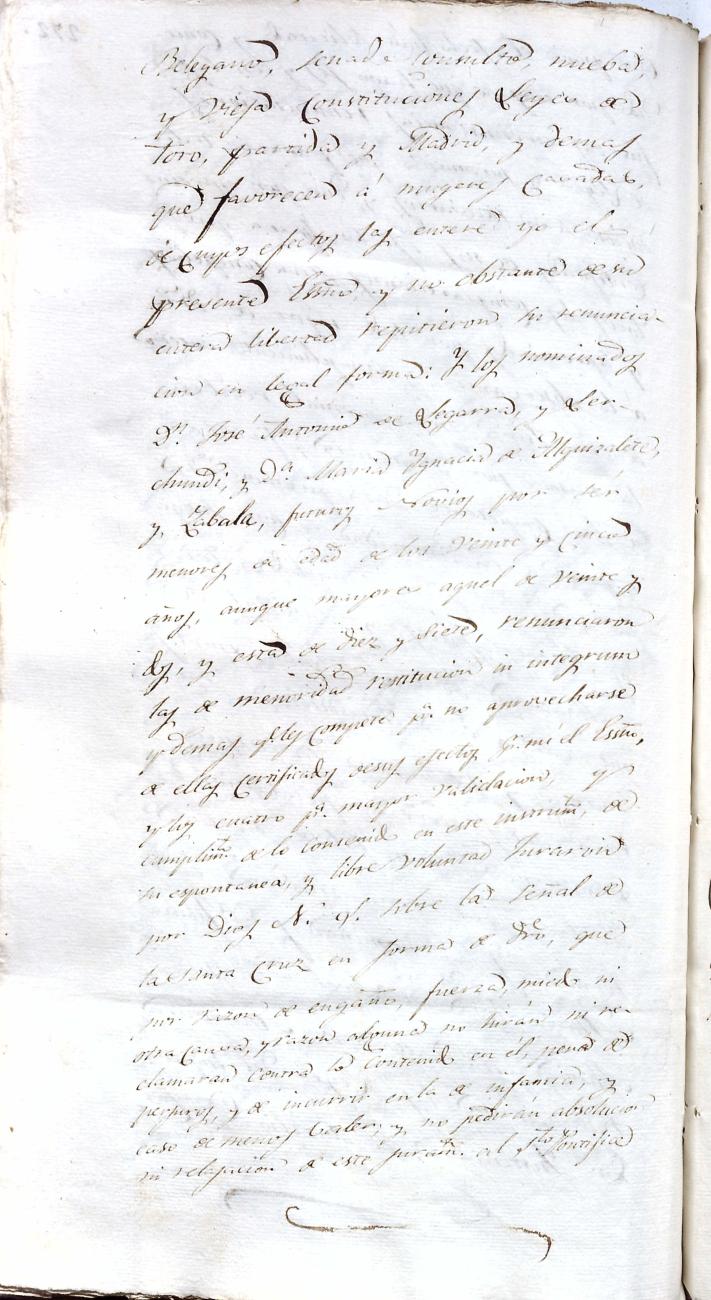 Belegano, senado Consulto, nueba,
y Vieja Constituciones Leyes de
toro, partida y Madrid, y demas
que favorecen á mugeres Casadas,
de cuyos efectos las enteré yo el
presente Essno, y no obstante de su
entera libertad repitieron su renuncia-
cion en legal forma: Y los nominados
Dn. José Antonio de Legarra, y Ler-
chundi, y Da. Maria Ygnacia de Alquizalete,
y Zabala, futuros Novios por ser
menores de edad de los veinte y cinco
años, aunque mayores aquel de veinte y
dos, y esta de diez y siete, renunciaron
las de menoridad restitucion in integrum
y demas q.e les compete p.a no aprovecharse
de ellas certificados de sus efectos p.r mi el Essno,
y los cuatro p.a mayor validacion, y
cumplim.to de lo contenido en este instrum.to, de
su espontanea, y libre voluntad Juraron
por Dios N. S. sobre la señal de
la Santa Cruz en forma de dro, que
por razon de engaño, fuerza, miedo ni
otra Causa, y razon alguna no hirán ni re-
clamarán contra lo contenido en él, pena de
perjuros, y de incurrir en la de infamia, y
caso de menos valer, y no pedirán absolución
ni relajación de este juram.to al S.to Pontifice